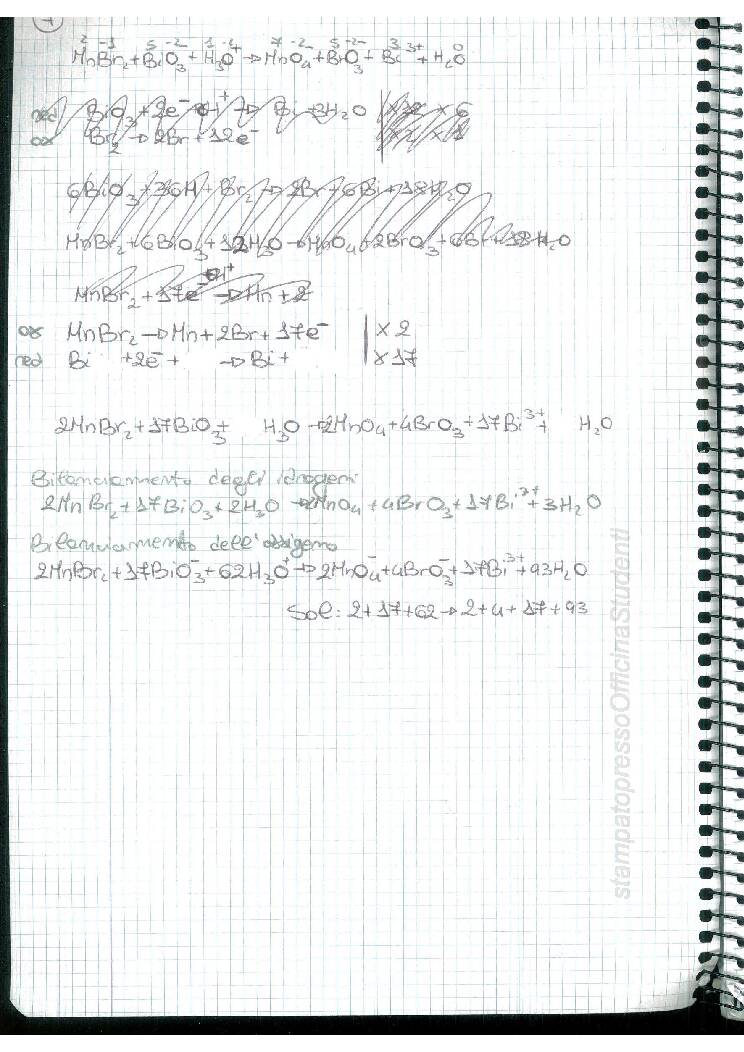 7
2 -1 5 -2 1 -2 7 -2 5 -2 3 0
MnBr₂ + BiO₃ + H₃O⁺ → MnO₄ + BrO₃ + Bi³⁺ + H₂O
red BiO₃ + 2e⁻ + → Bi + 3H₂O | × 6
ox Br₂ → 2Br + 12e⁻
6BiO₃ + 36H + Br₂ → 2Br + 6Bi + 18H₂O
MnBr₂ + 6BiO₃ + 12H₃O → MnO₄ + 2BrO₃ + 6Bi + 18H₂O
MnBr₂ + 17e⁻ → Mn + 2
ox MnBr₂ → Mn + 2Br + 17e⁻ | × 2
red Bi + 2e⁻ + → Bi + | × 17
2MnBr₂ + 17BiO₃ + H₃O → 2MnO₄ + 4BrO₃ + 17Bi³⁺ + H₂O
Bilanciamento degli idrogeni
2MnBr₂ + 17BiO₃ + 2H₃O → 2MnO₄ + 4BrO₃ + 17Bi³⁺ + 3H₂O
Bilanciamento dell'ossigeno
2MnBr₂ + 17BiO₃⁻ + 62H₃O⁺ → 2MnO₄⁻ + 4BrO₃⁻ + 17Bi³⁺ + 93H₂O
Sol: 2 + 17 + 62 → 2 + 4 + 17 + 93
stampatopressoOfficinaStudenti